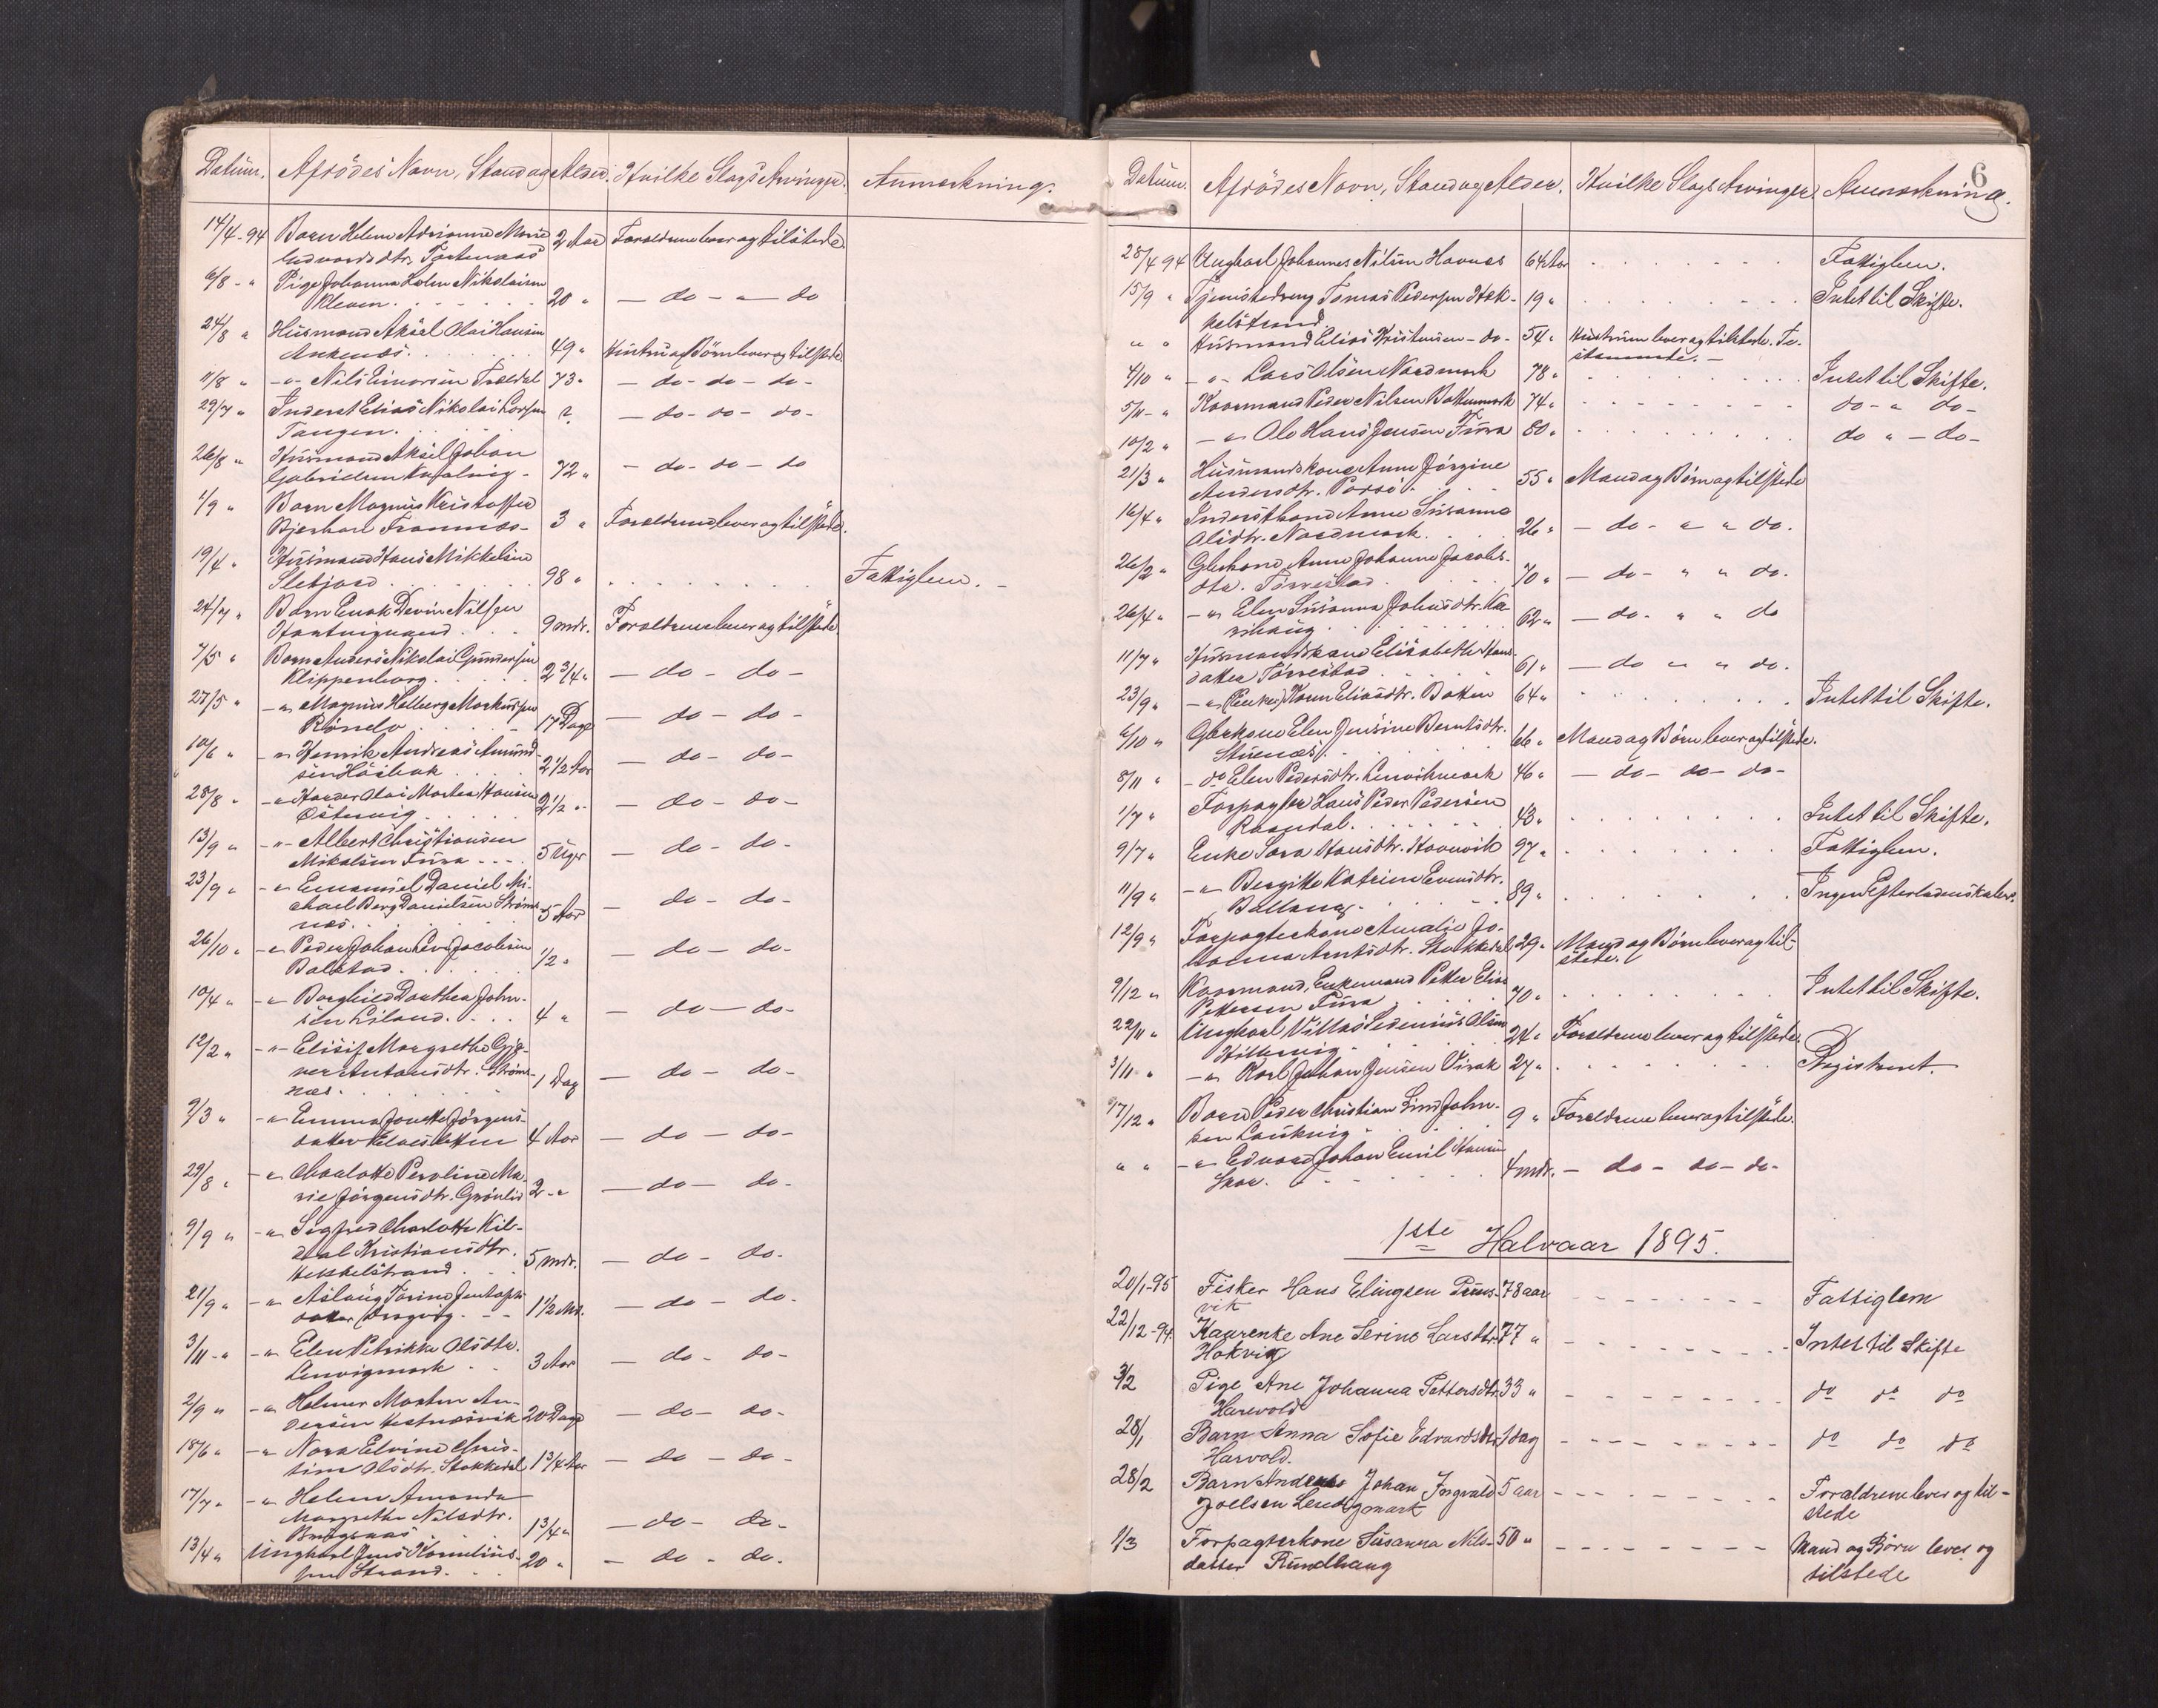 Datum. Afdödes Navn, Stand og Alder. Hvilke Slags Arvinger. Anmerkning.
14/4-94 Barn Helene Adrianne Marie 2 Aar Foraldrene lever og tilstede
Edvardsdtr. Tortenaas
6/8 - " Pige Johanna Nikolaisen
Kleven. 20 " — do - " — do
24/8 " Husmand Aksel Olai Hansen
Ankenes. 49 " Hustru og Börn lever og tilstede
11/8 " - " - Nils Einarsen Traldal 73 " — do - do - do -
29/7 " Inderst Elias Nikolai Larsen ? — do - do - do -
Tangen.
26/8 " Husmand Aksel Johan
Gabrielsen 72 " — do - do - do
1/9 " Barn Magnus Kristoffer
Bjerkan Framnæs - 3 " Foraldrene lever og tilstede.
19/4 " Husmand Hans Mikkelsen
Sletjord 98 " Fattiglem. -
24/7 " Barn Enok Devin Nilsen
9 mdr. Foraldrene lever og tilstede
7/5 " Barn Anders Nikolai Gundersen
Klippenborg. 2 3/4 " — do - do -
27/5 " - " Magnus Holberg Markussen
17 Dage — do - do -
10/6 " - " Henrik Andreas Amund-
sen Haabak 2 1/2 Aar — do - do -
28/8 " - " Olai Martin Hansen
Östervig 2 1/2 " - — do - do -
13/9 " - " - Albert Christiansen
Mikalsen Fura - - - . 5 Uger — do - do -
23/9 " - " Emanuel Daniel Mi-
chael Berg Danielsen Ströms-
næs. 5 Aar — do - do -
26/10 " - " Peder Johan Jacobsen
Balstad. 1/2 " — do - do -
10/4 " - " Borghild Dorthea John-
sen Liland. 4 " — do - do -
12/2 " - " - Elisif Margrethe
Antonsdtr. Ströms-
næs. 1 Dag — do - do -
9/3 " - " Emma Jonette Jörgens-
datter 4 Aar — do - do -
29/8 " - " Charlotte Peroline Ma-
rie Jörgensdtr. Grönlid 2 - " — do - do -
9/9 " - " Charlotte Kil-
dal Kristiansdtr.
Hekkelstrand 5 mdr. — do - do -
21/9 " - " Aslaug Torine Jentoft-
datter 1 1/2 Md. — do - do -
3/11 - " - " Elen Petrikka Olsdtr.
Lenvigmark 3 Aar — do - do -
2/9 " - " Helmer Morten An-
dersen Hestnæsvik 20 Dage — do - do -
18/6 " - " Nora Elvine Chris-
tine Olsdtr. Stokkedal 1 3/4 Aar — do - do -
17/7 " - " Helene Amanda
Margrethe Nilsdtr.
1 3/4 " — do - do -
13/4 " Ungkarl Jens Kornelius-
sen Strand. 20 " — do - do.
6
Datum. Afdödes Navn, Stand og Alder. Hvilke Slags Arvinger. Anmerkning.
28/4 94 Ungkarl Johannes Nilsen Havnes 64 Aar Fattiglem.
15/9 " Tjenestedreng Tomas Pedersen Hek- 19 " Intet til Skifte.
kelstrand.
" " Husmand Elias Kristensen - do - 54 " Hustruen lever og tilstede. Te-
stamente. -
4/10 " - " - Lars Olsen Nordmark 78 " Intet til Skifte.
5/11 - " Kaarmand Peder Nilsen Botnmark 74 " do - " do -
10/2 " - " Ole Hans Jensen Fura 80 " do " - do -
21/3 " Husmandskone Anne Jörgine
Andersdtr. Porsö. 55 " Mand og Börn og tilstede
16/4 " Inderstkone Anne Susanna
Olsdtr. Nordmark. 26 " — do - " " do.
26/2 " Gbrkone Anne Johanne Jacobs-
dtr. Törrestad 70 " — do - " " do.
26/4 " - " Elen Susanna Johnsdtr. Ka-
rihaug 62 " — do - " " do
11/7 " Husmandskone Elisabeth Hans-
datter Törrestad 61 " — do " " do.
23/9 " - " (Enke) Karen Eliasdtr. Botnen 64 " Intet til Skifte.
6/10 " Gbrkone Elen Jensine Berntsdtr.
66 " Mand og Börn lever og tilstede.
8/11 " - do Elen Pedersdtr. Lenvikmark 46 " — do - do - do -
1/7 " Forpagter Hans Peder Pedersen
Raandal. 43 " Intet til Skifte.
9/7 " Enke Sara Hansdtr. Haavik 97 " Fattiglem.
11/9 " - " - Bergitte Katrine Evensdtr.
Ballang. 89 " Ingen Efterladenskaber.
12/9 " Forpagterkone Amalie Jo-
hanna Arntsdtr. Stokkedal 29 " Mand og Börn lever og til-
stede.
9/12 " Kaarmand, Enkemand Petter Elias
Pettersen Fura 70 " Intet til Skifte.
22/11 " Ungkarl Villas Sedenius Olsen
24 " Foraldrene lever og tilstede.
3/11 " - " Karl Johan Jensen Virak 27 " Registreret.
17/12 " Barn Peder Christian Lind John-
sen Laukvig 9 " Foraldrene lever og tilstede.
" " - " Edvard Johan Emil Hansen
Skar. 4 mdr. — do - do - do -
1ste Halvaar 1895.
20/1-95 Fisker Hans Elingsen Präst- 78 aar Fattiglem
vik
22/12-94. Kaarenke Ane Serine Larsdtr. 77 " Intet til Skifte
Hokvig
3/2 Pige Ane Johanna Pettersdtr. 33 " do do do
Harevold
28/1 Barn Anna Sofie Edvardsdtr. 1 dag do do do
Harvold.
28/2 Barn Andreas Johan Ingvald 5 aar Foraldrene lever og til-
Joelsen Lenvigmark stede
1/3 Forpagterkone Susanna Nils- 50 " Mand og Börn lever og
datter Rundhaug tilstede